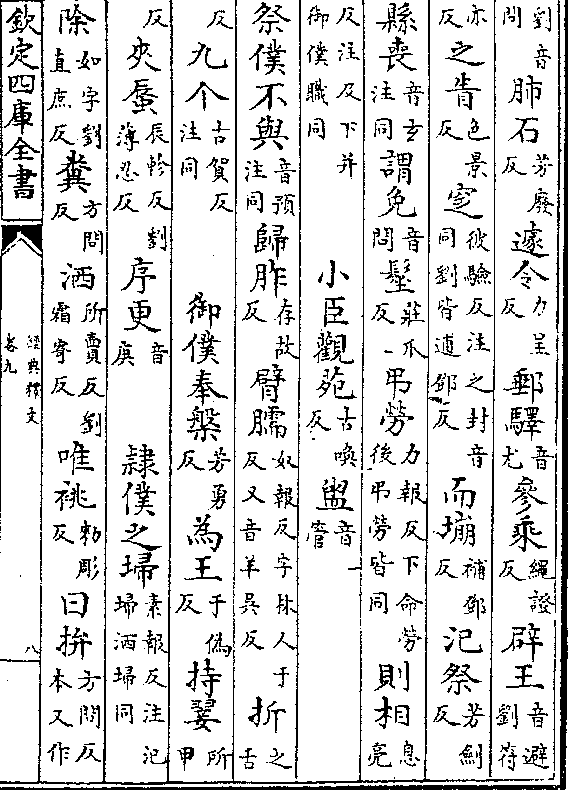 劉音問肺石芳廢反遽令力呈反郵驛音尤參乘繩證反辟王音避劉符
亦反之眚色景反窆彼驗反注之封音同劉皆逋鄧反而堋補鄧反汜祭芳劍反
縣喪音玄注同謂免音問髽莊瓜反弔勞力報反下命勞後弔勞皆同則相息亮
反注及下并御僕職同 小臣觀苑古喚反盥音管
祭僕不與音預注同歸胙存故反臂臑奴報反字林人于反又音羊吳反折之舌
反九个古賀反注同 御僕奉槃芳勇反為王于偽反持翣所甲
反夾蜃辰軫反劉薄忍反序更音庚 隸僕之埽素報反注汜埽洒埽同
除如字劉直庶反糞方問反洒所賣反劉霜寄反唯祧勑彫反曰拚方問反本又作
欽定四庫全書
經典釋文
卷九
八